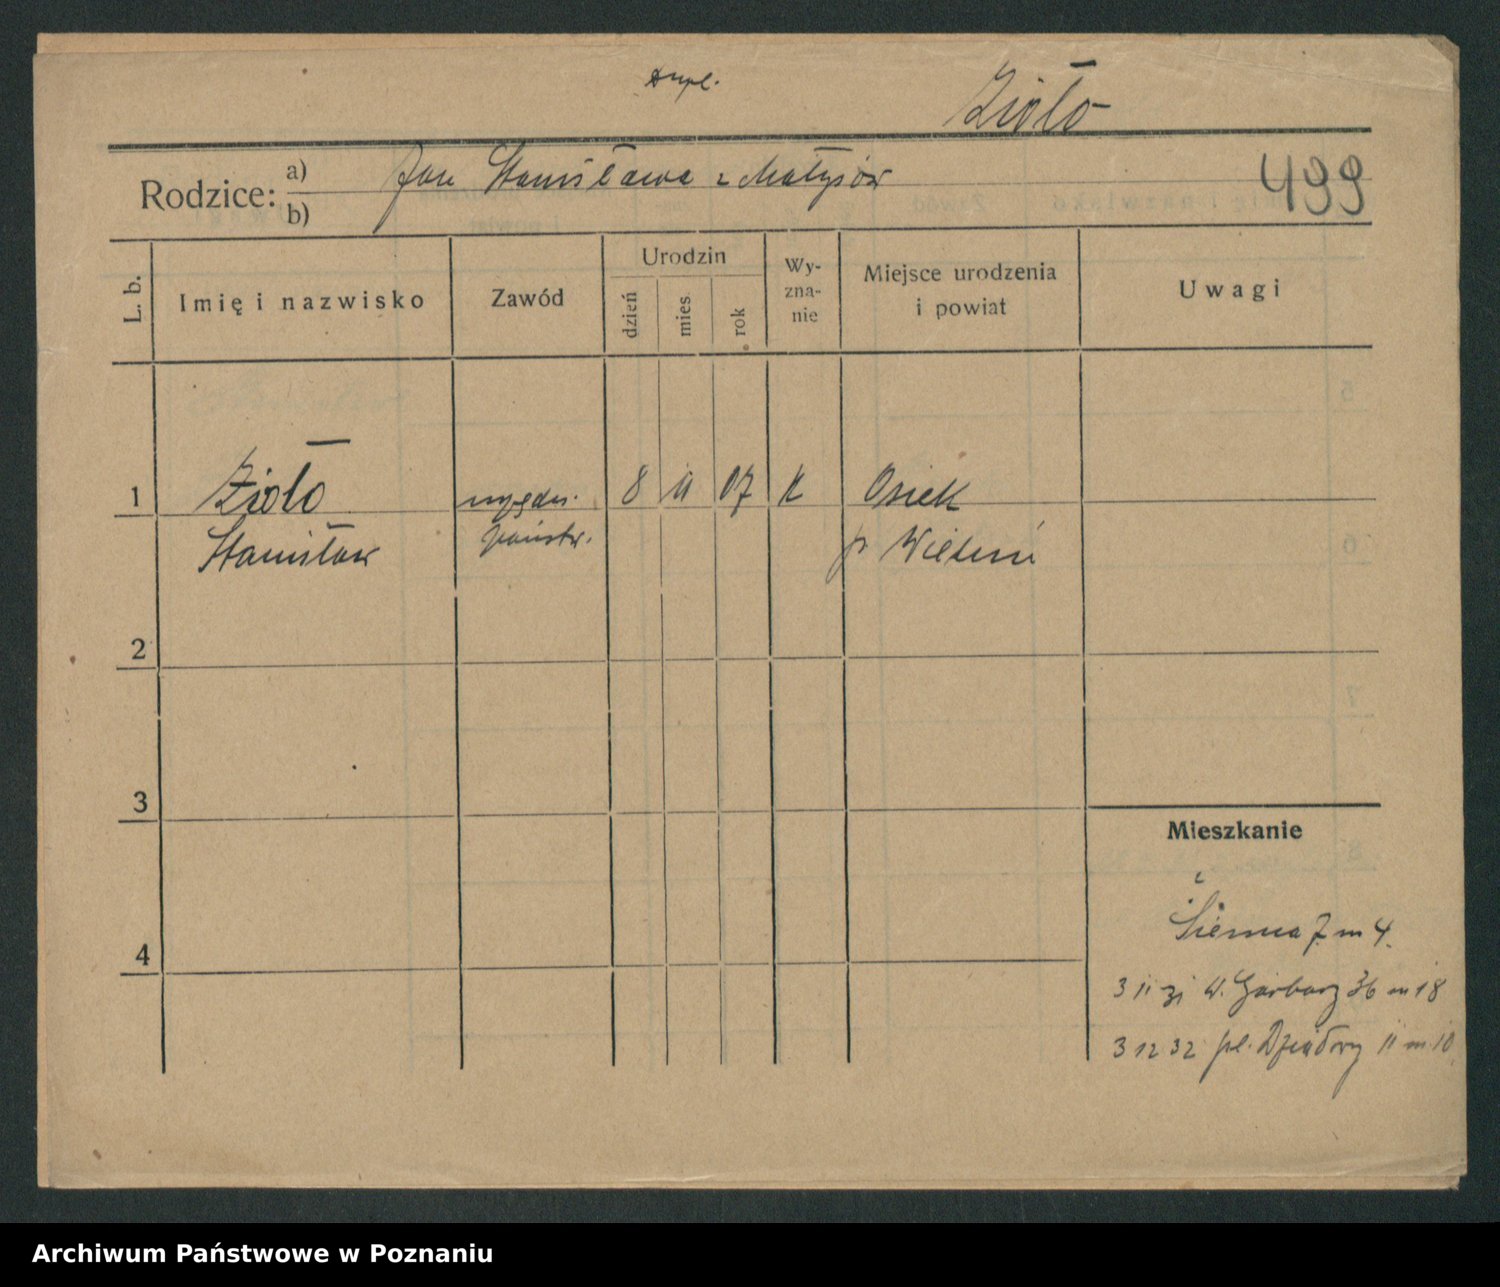 Zioło
Rodzice: a) Jan Stanisława z Małysów
b)
499
L. b.
Imię i nazwisko
Zawód
Urodzin
dzień
mies.
rok
Wy-
zna-
nie
Miejsce urodzenia
i powiat
Uwagi
1 Zioło 8 11 07 k Osiek
Stanisław państw. p Wieluń
2
3
Mieszkanie
4
Sienna 7 m 4.
3 11 31 W. Garbary 36 m 18
3 12 32 pl. Działowy 11 m 10
Archiwum Państwowe w Poznaniu